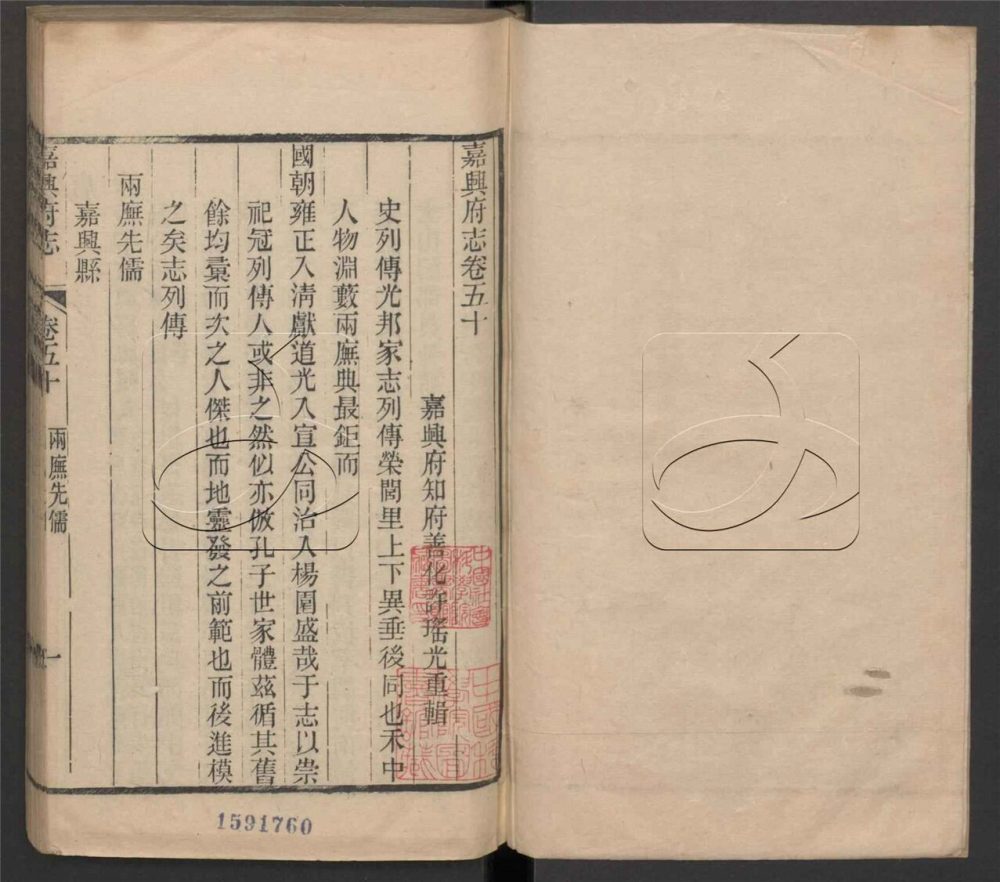 嘉興府志卷五十
嘉興府知府善化許瑤光重輯
史列傳光邦家志列傳榮閭里上下異垂後同也禾中
人物淵藪兩廡典最鉅而
國朝雍正入清獻道光入宣公同治入楊園盛哉于志以崇
祀冠列傳人或非之然似亦倣孔子世家體茲循其舊
餘均彙而次之人傑也而地靈發之前範也而後進模
之矣志列傳
兩廡先儒
嘉興縣
嘉興府志 卷五十 兩廡先儒 一
1591760